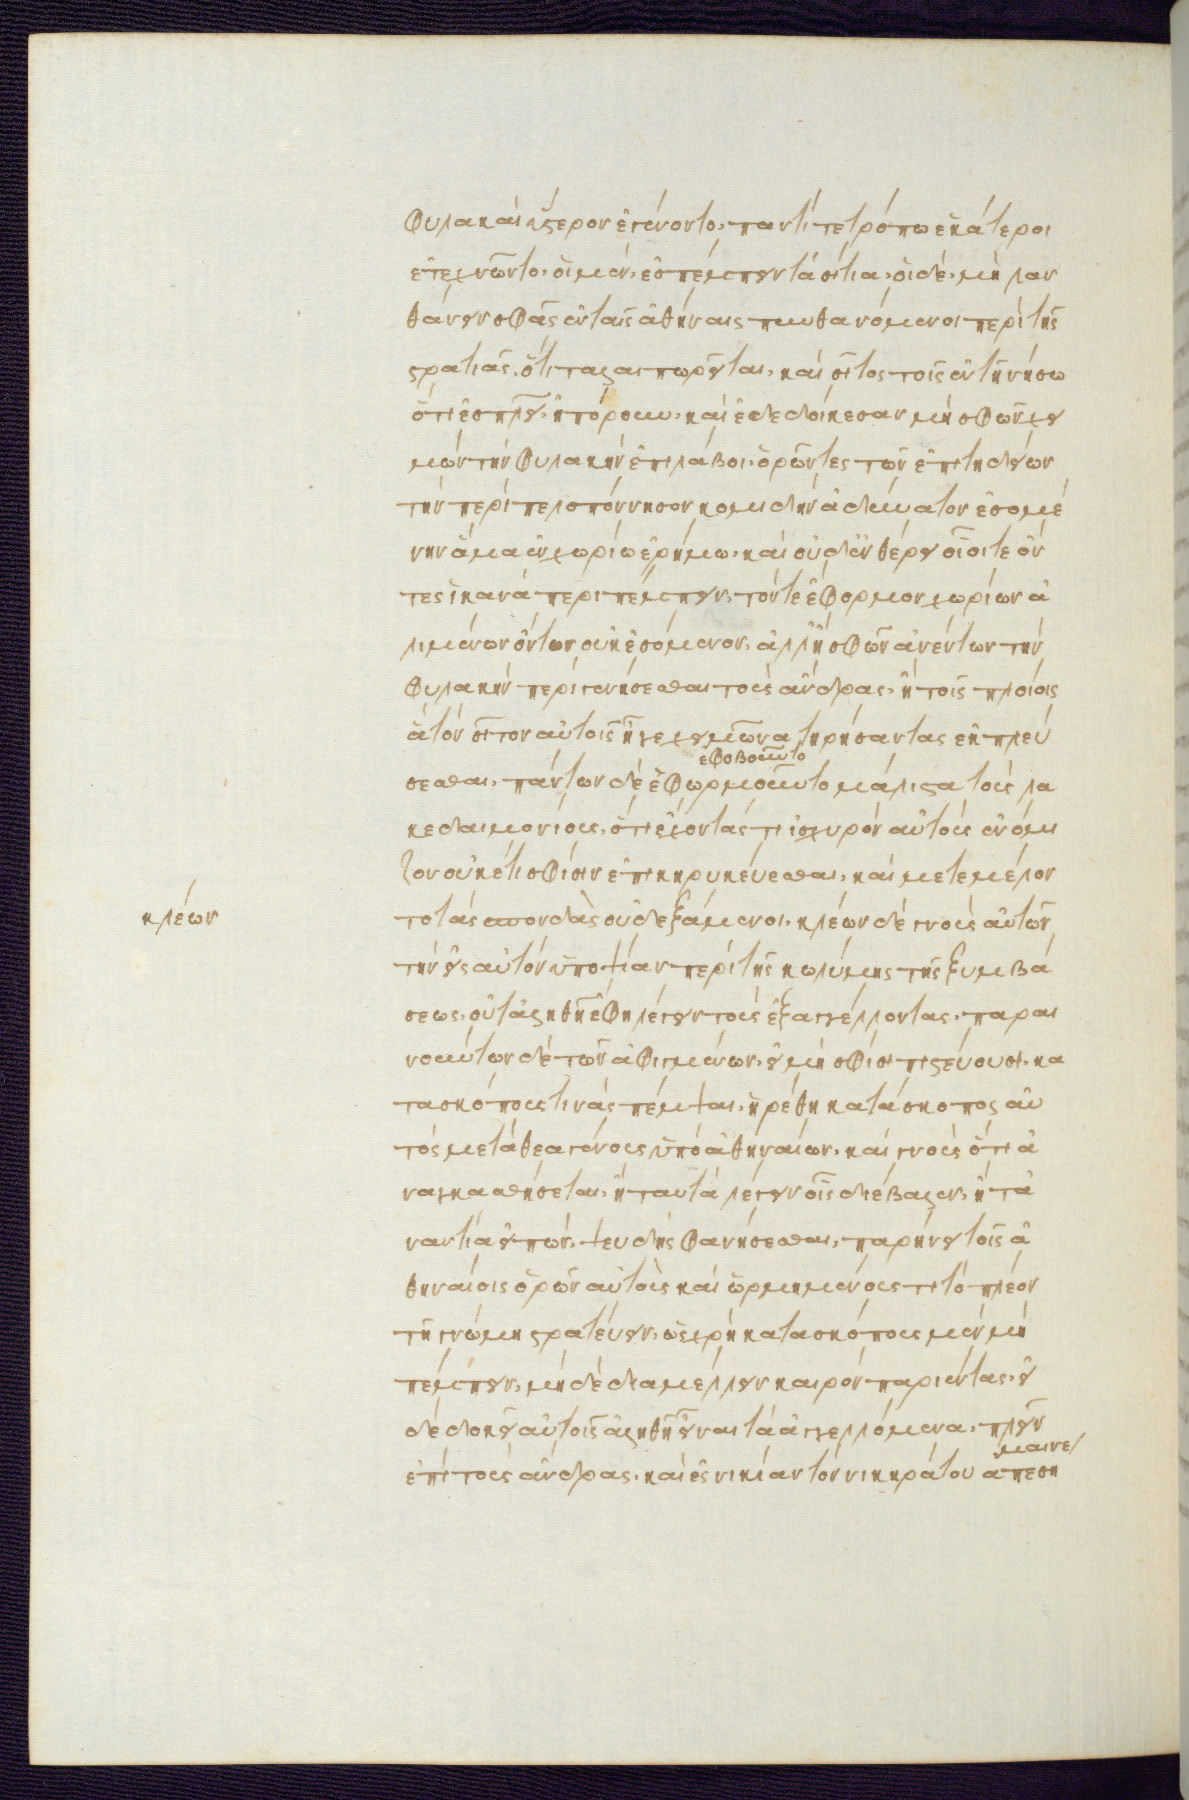 φυλακαὶ ὕστερον ἐγένοντο. παντί τε τρόπω ἑκάτεροι
ἐτεχνῶντο. οἱ μὲν, ἐσπέμπειν τὰ σιτία. οἱ δὲ, μὴ λαν
θάνειν σφᾶς ἐν ταῖς ἀθήναις πυνθανόμενοι περὶ τῆς
στρατιᾶς, ὅτι ταλαιπωρεῖται. καὶ σῖτος τοῖς ἐν τῆ νήσω
ὅτι ἐσπλεῖ, ἠπόρουν. καὶ ἐδεδοίκεσαν μὴ σφῶν χει
μὼν τὴν φυλακὴν ἐπιλάβοι. ὁρῶντες τῶν ἐπιτηδείων
τὴν περὶ πελοπόννησον κομιδὴν ἀδύνατον ἐσομέ
νην ἅμα ἐν χωρίω ἐρήμω. καὶ οὐδ' ἐν θέρει οἷοί τε ὄν
τες ἱκανὰ περιπέμπειν. τόν τε ἔφορμον χωρίων ἀ
λιμένων ὄντων οὐκ ἐσόμενον. ἀλλ' ἢ σφῶν ἀνέντων τὴν
φυλακὴν περιγενήσεσθαι τοὺς ἄνδρας. ἢ τοῖς πλοίοις
ἃ τὸν σῖτον αὐτοῖς ἦγε χειμῶνα τηρήσαντας ἐκπλεύ
ἐφοβοῦντο
σεσθαι. πάντων δὲ ἐφωρμοῦντο μάλιστα τοὺς λα
κεδαιμονίους. ὅτι ἔχοντάς τι ἰσχυρὸν αὐτοὺς ἐνόμι
ζον οὐκέτι σφίσιν ἐπικηρυκεύεσθαι. καὶ μετεμέλον
κλέων
το τὰς σπονδὰς οὐ δεξάμενοι. κλέων δὲ γνοὺς αὐτῶν
τὴν ἐς αὐτὸν ὑποψίαν περὶ τῆς κωλύμης τῆς ξυμβά
σεως. οὐ τἀληθῆ ἔφη λέγειν τοὺς ἐξαγγέλλοντας. παραι
νούντων δὲ τῶν ἀφιγμένων, εἰ μὴ σφίσι πιστεύουσι. κα
τασκόπους τινὰς πέμψαι. ἡρέθη κατάσκοπος αὐ
τὸς μετὰ θεαγένους ὑπὸ ἀθηναίων. καὶ γνοὺς ὅτι ἀ
ναγκασθήσεται. ἢ ταυτὰ λέγειν οἷς διέβαλεν. ἢ τἀ
ναντία εἰπὼν, ψευδὴς φανήσεσθαι. παρήνει τοῖς ἀ
θηναίοις ὁρῶν αὐτοὺς καὶ ὡρμημένους τι τὸ πλέον
τῆ γνώμη στρατεύειν. ὡς χρὴ κατασκόπους μὲν μὴ
πέμπειν. μηδὲ διαμέλλειν καιρὸν παριέντας. εἰ
δὲ δοκεῖ αὐτοῖς ἀληθῆ εἶναι τὰ ἀγγελλόμενα. πλεῖν
μαινε
ἐπὶ τοὺς ἄνδρας. καὶ ἐς νικίαν τὸν νικηράτου ἀπεση